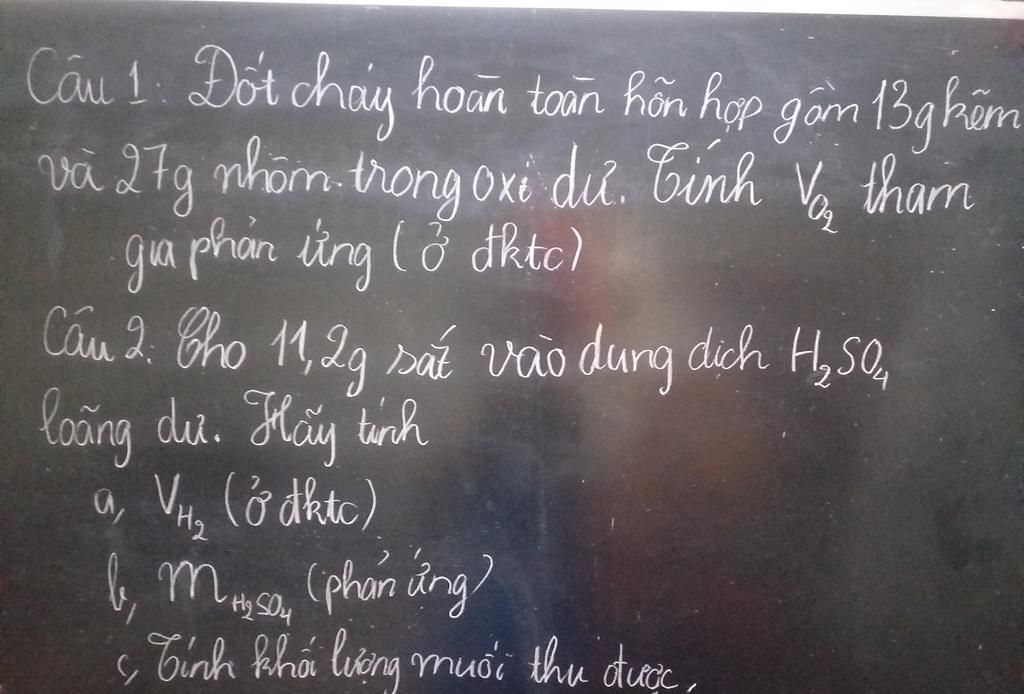 Câu 1: Đốt cháy hoàn toàn hỗn hợp gồm 13g kẽm
và 27g nhôm trong oxi dư. Tính V_{O_2} tham
gia phản ứng (ở đktc)
Câu 2: Cho 11,2g sắt vào dung dịch H_2SO_4
loãng dư. Hãy tính
a, V_{H_2} (ở đktc)
b, m_{H_2SO_4} (phản ứng)
c, Tính khối lượng muối thu được.